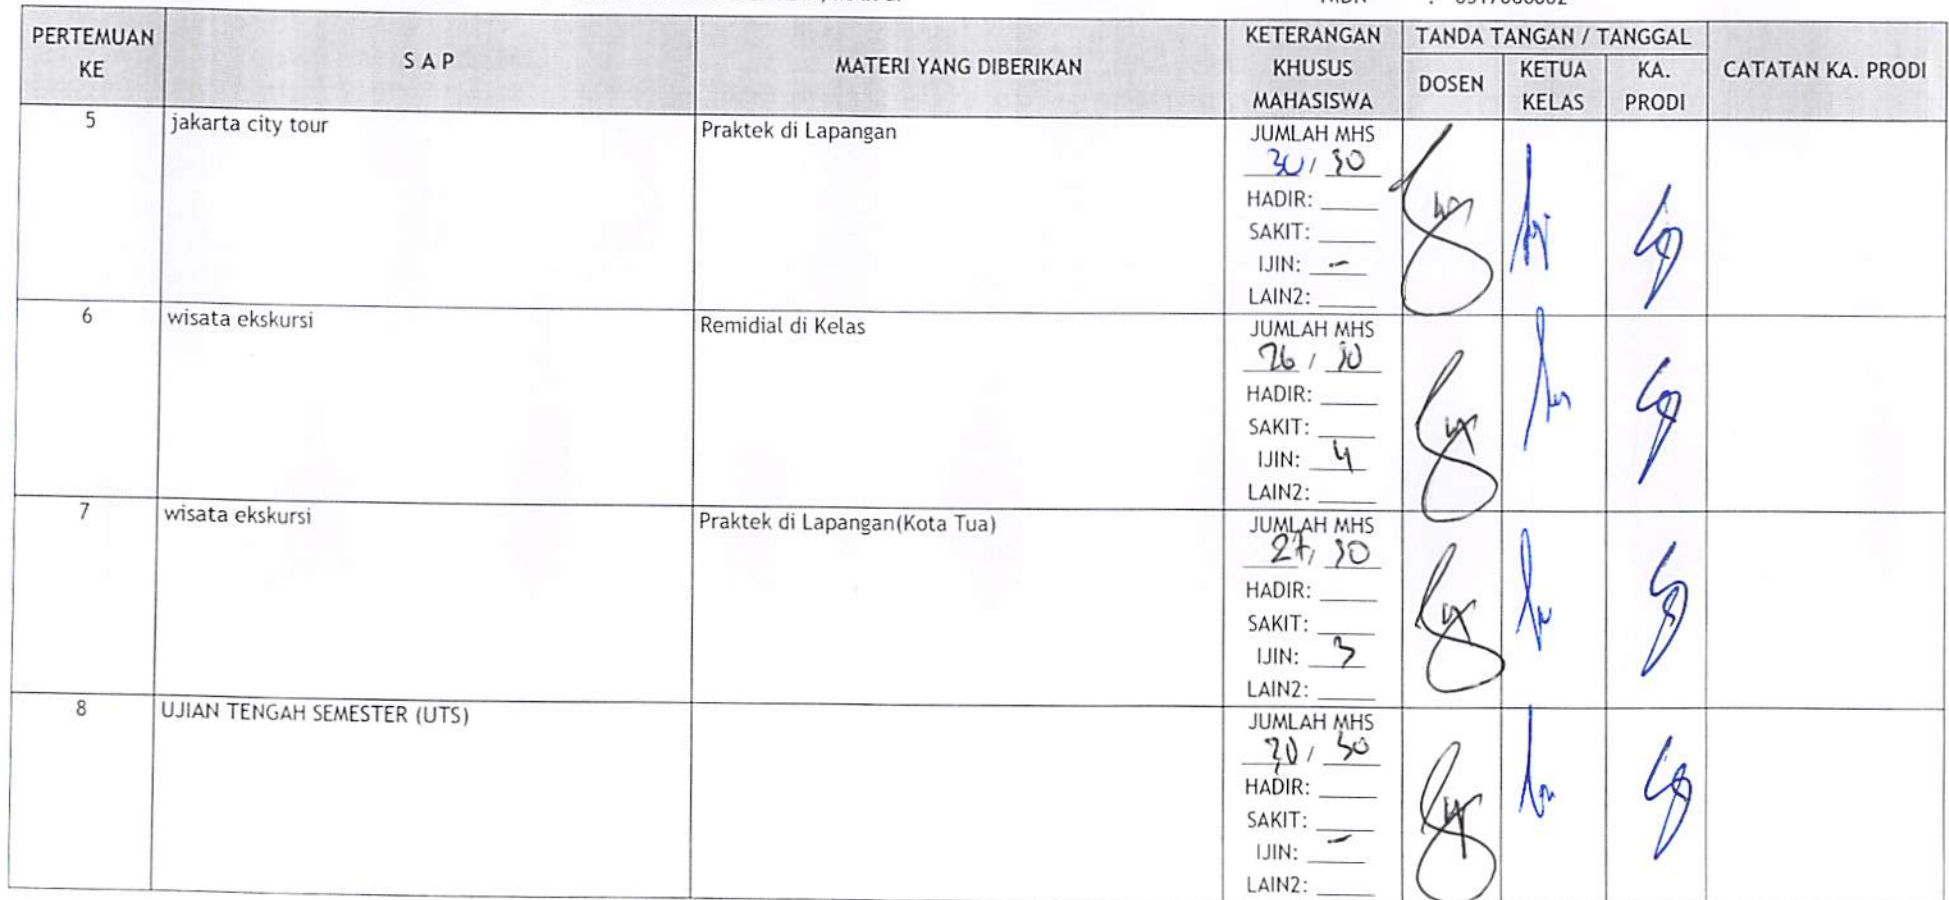 PERTEMUAN KE
S A P
MATERI YANG DIBERIKAN
KETERANGAN KHUSUS MAHASISWA
TANDA TANGAN / TANGGAL
DOSEN
KETUA KELAS
KA. PRODI
CATATAN KA. PRODI
5
jakarta city tour
Praktek di Lapangan
JUMLAH MHS
30 / 30
HADIR: ____
SAKIT: ____
IJIN: -
LAIN2: ____
6
wisata ekskursi
Remidial di Kelas
JUMLAH MHS
26 / 30
HADIR: ____
SAKIT: ____
IJIN: 4
LAIN2: ____
7
wisata ekskursi
Praktek di Lapangan(Kota Tua)
JUMLAH MHS
27 / 30
HADIR: ____
SAKIT: ____
IJIN: 3
LAIN2: ____
8
UJIAN TENGAH SEMESTER (UTS)
JUMLAH MHS
30 / 30
HADIR: ____
SAKIT: ____
IJIN: -
LAIN2: ____